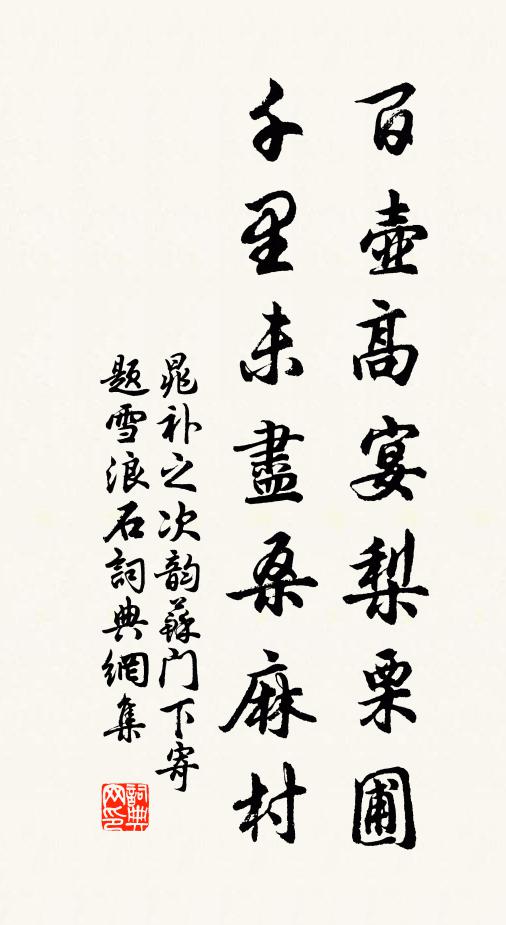 百壺高宴梨栗圃
千里未盡桑麻村
晁补之次韵蘇门下寄
题雪浪石詞典網集
詞典网印